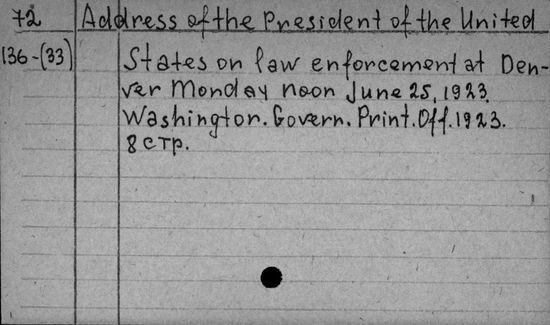 72 Address of the President of the United
136-(33) States on law enforcement at Den-
ver Monday noon June 25, 1923.
Washington. Govern. Print. Off. 1923.
8 стр.